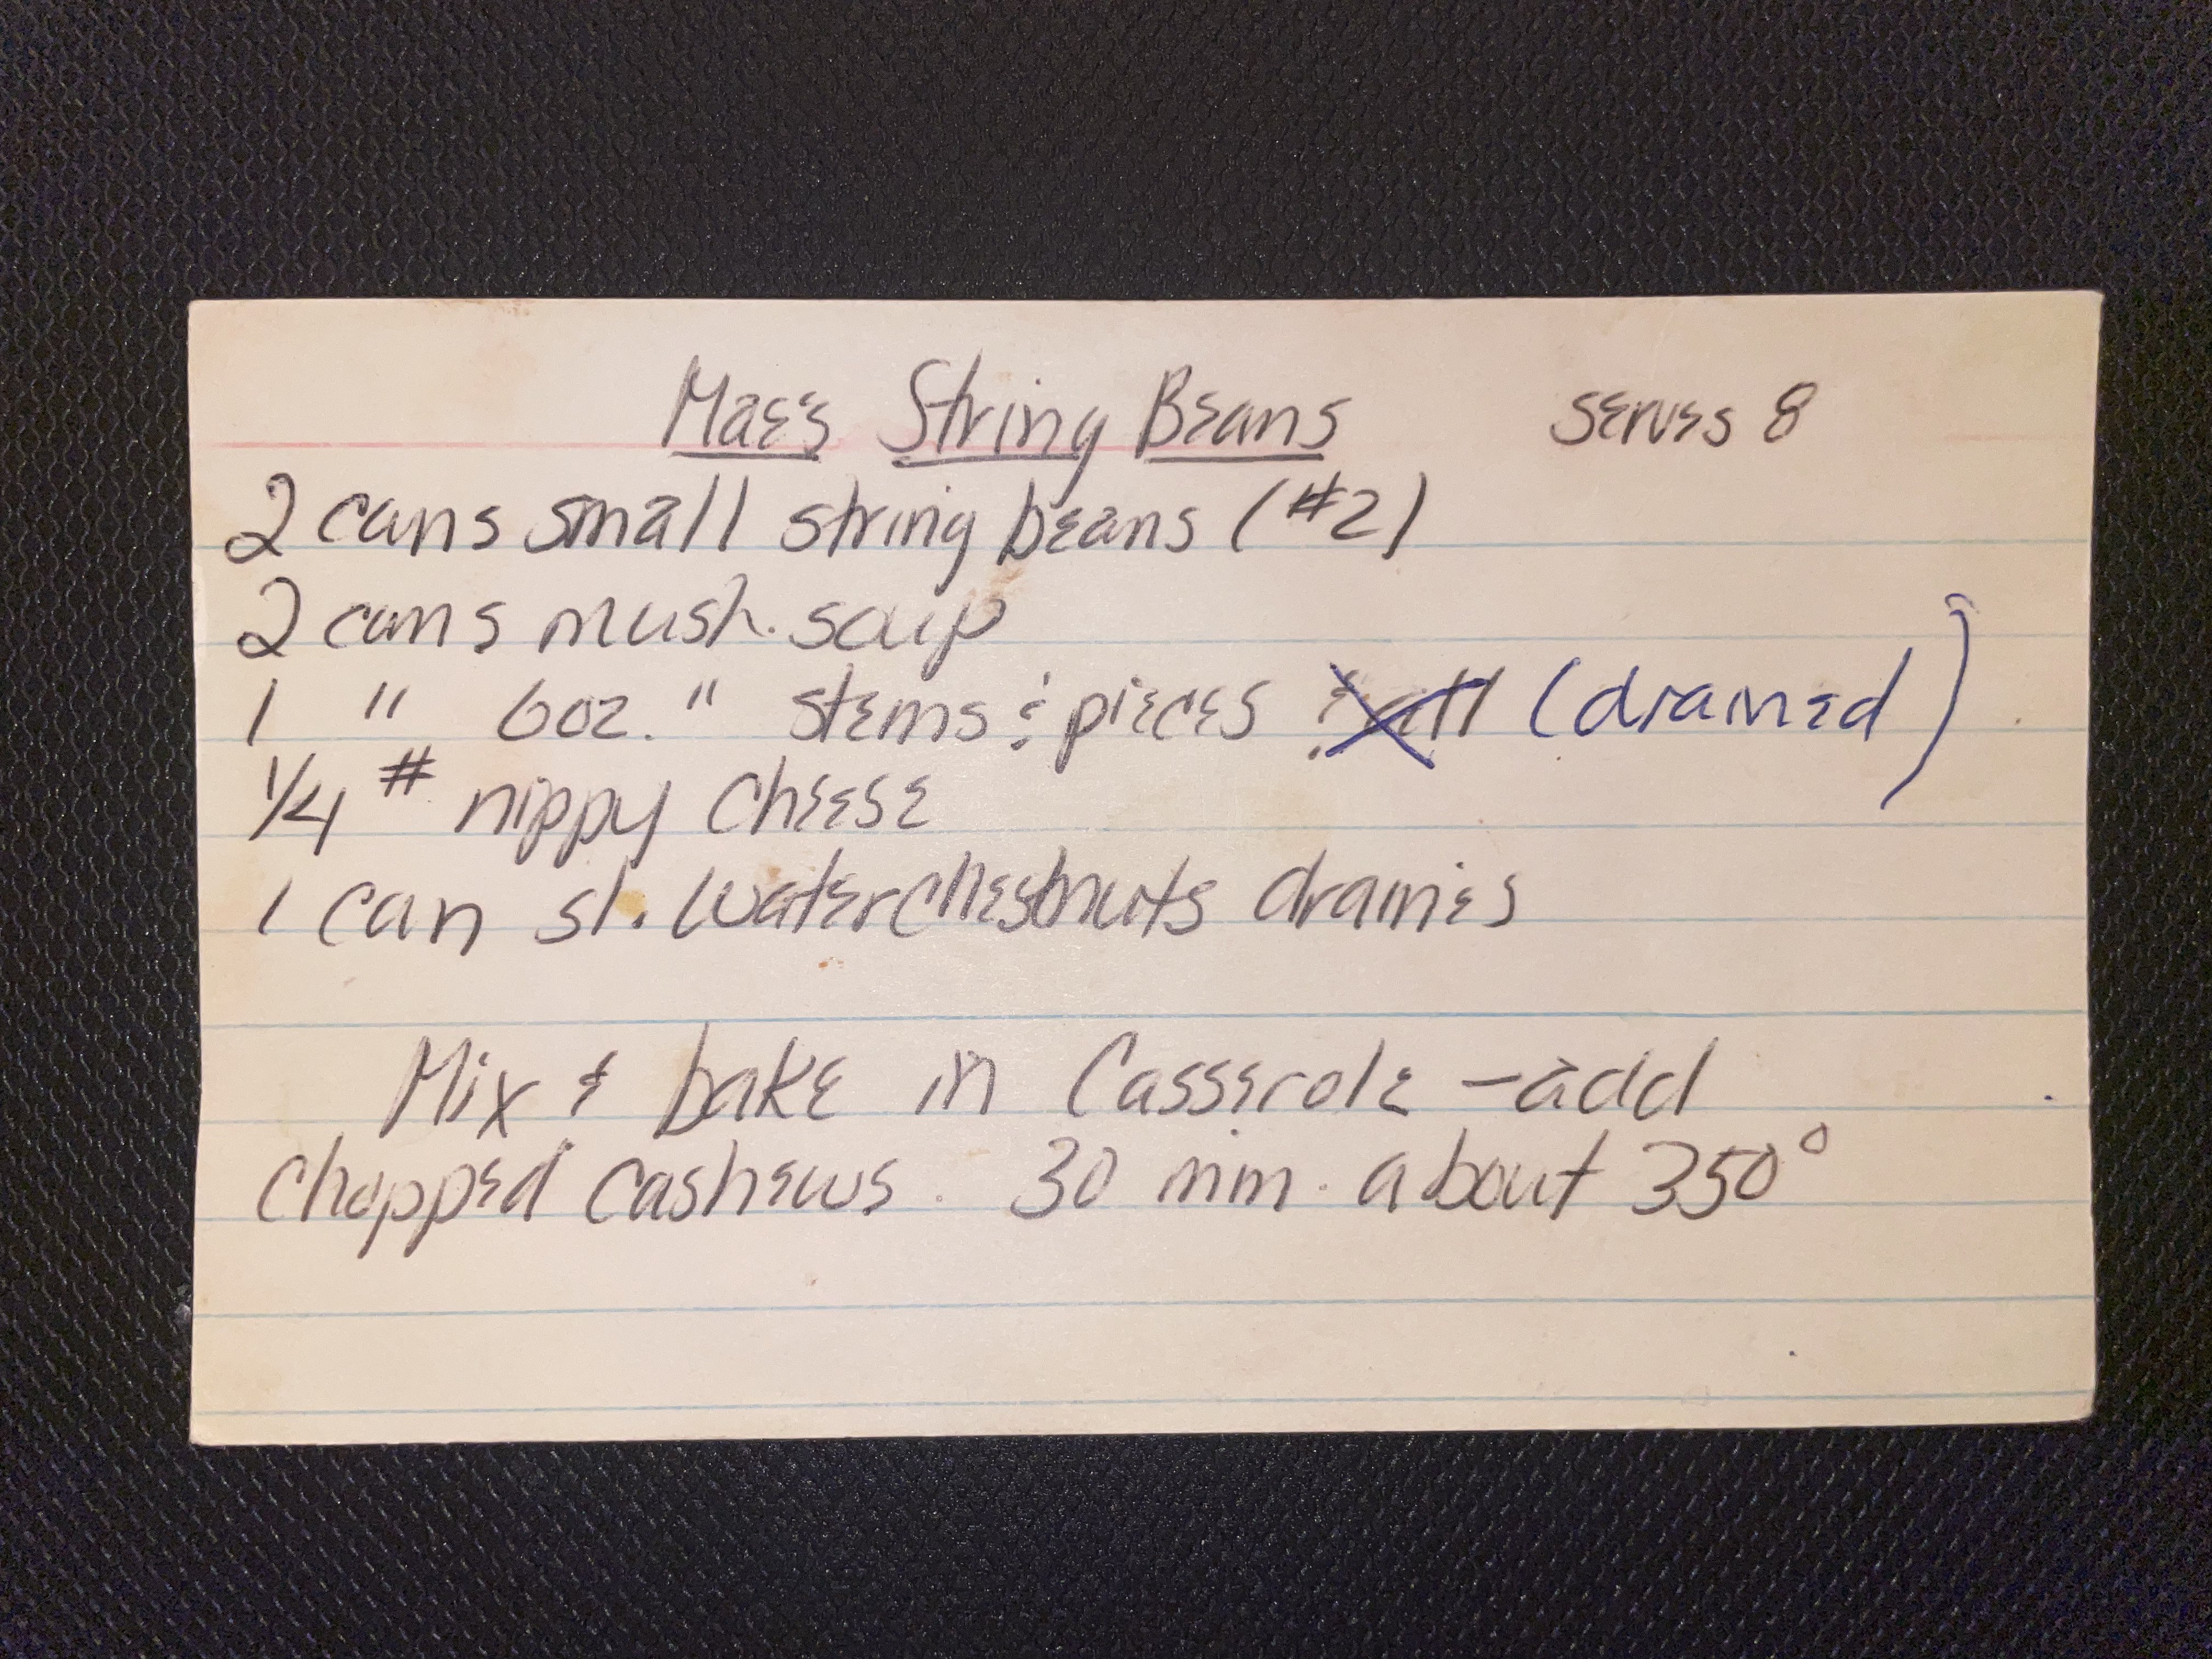 Mae's String Beans serves 8
2 cans small string beans (#2)
2 cans mush. soup
1 " 6oz. " stems & pieces & all (drained)
1/4 # nippy cheese
1 can sl. waterchestnuts drained
Mix & bake in Casserole - add
chopped cashews. 30 min. about 350°